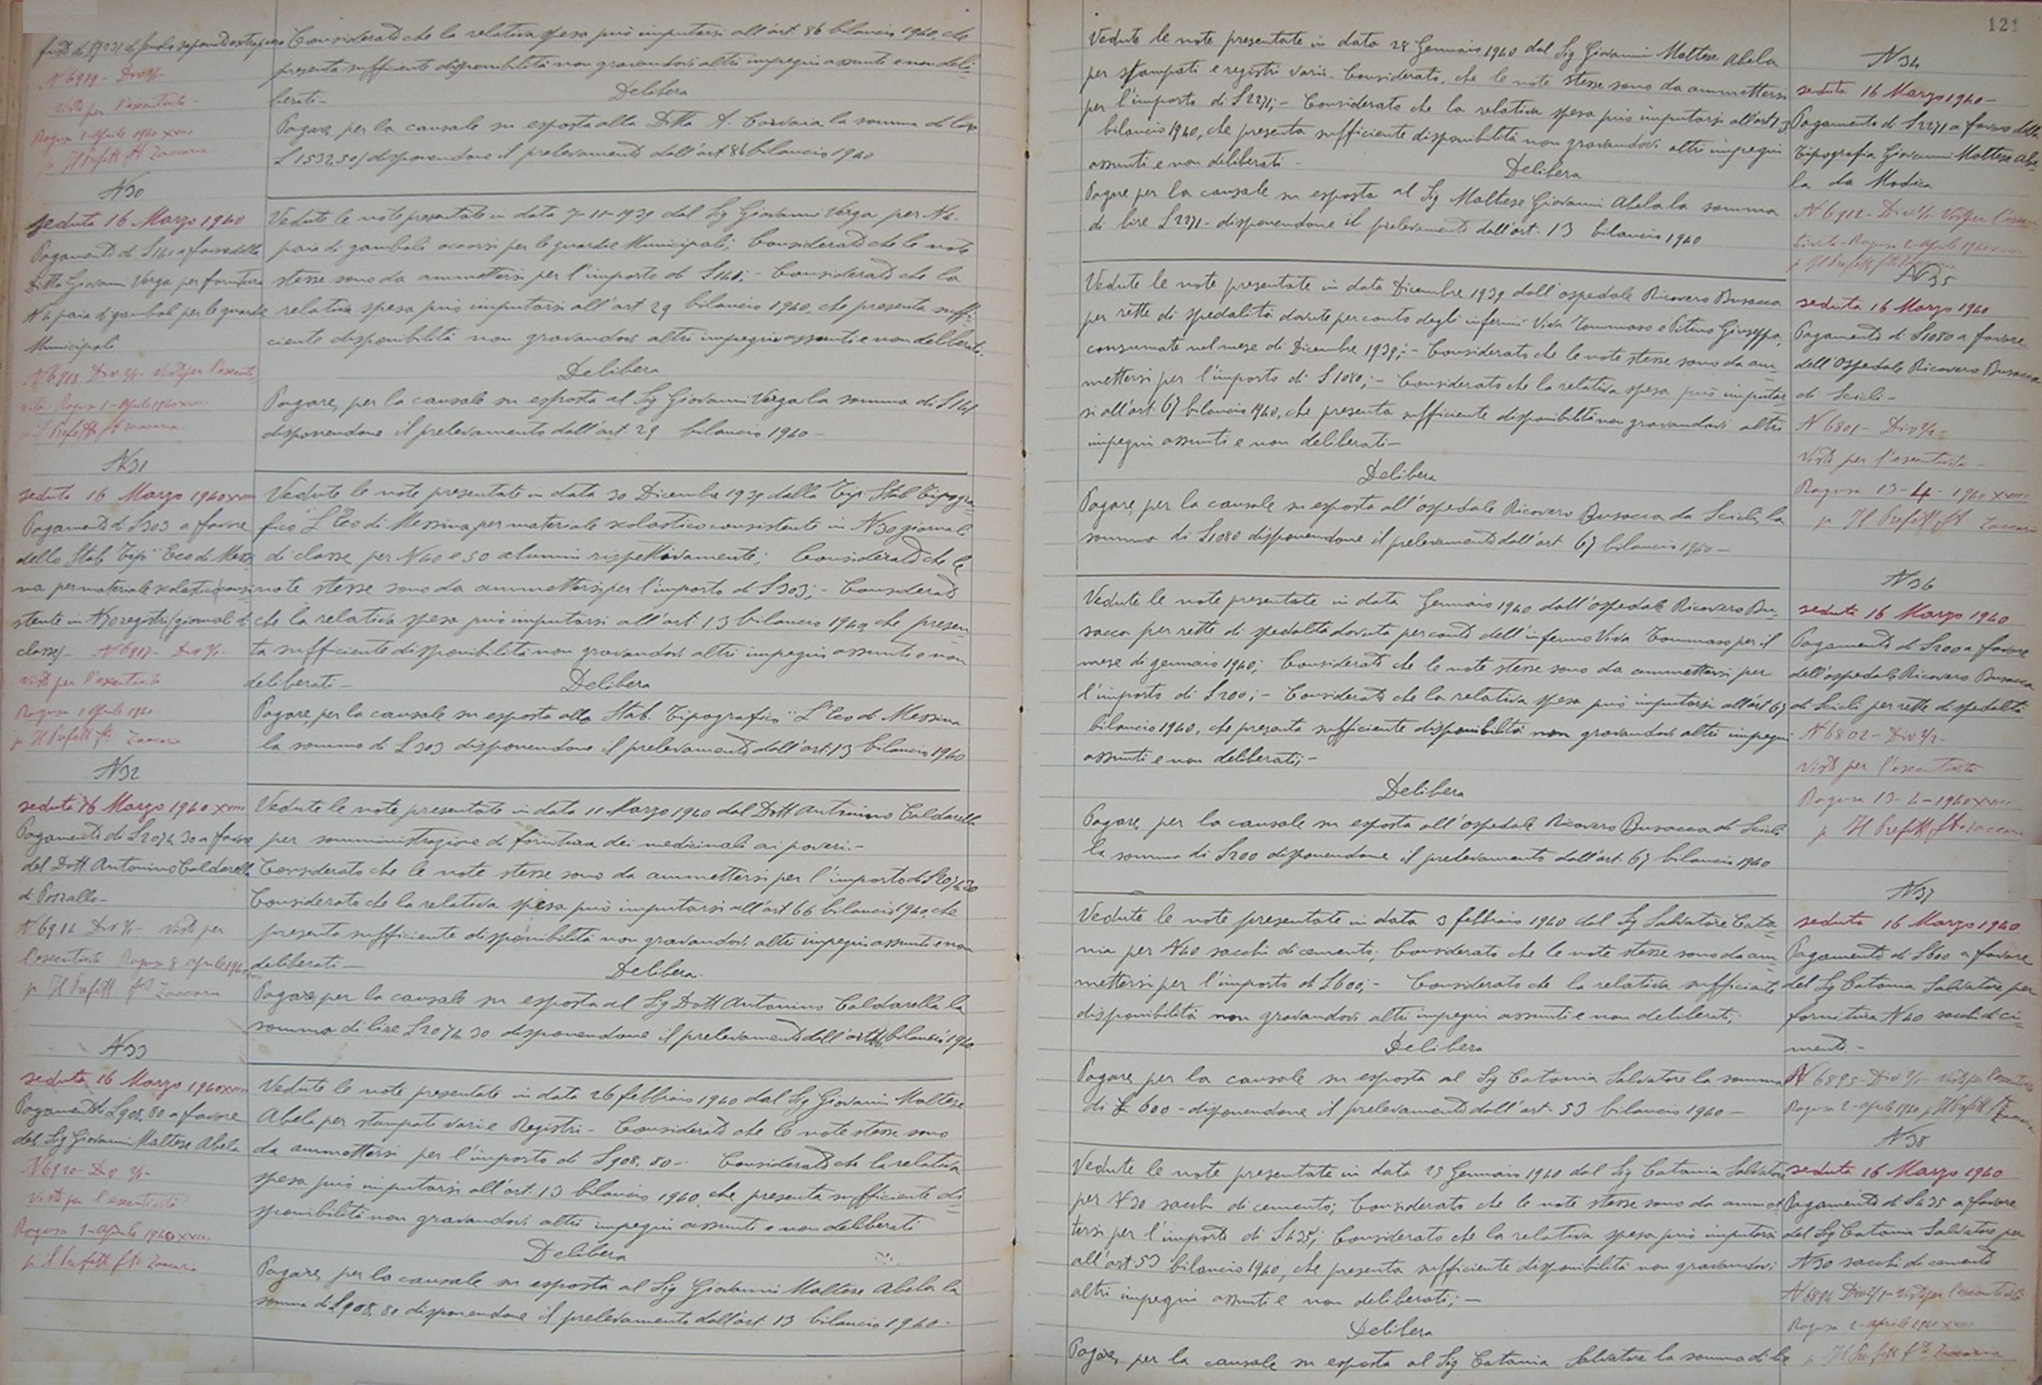 Considerato che la relativa spesa può imputarsi all'art. 86 bilancio 1940, che
presenta sufficiente disponibilità non gravandovi altri impegni assunti e non deli-
berati-
Delibera
Pagare, per la causale su esposta alla Ditta A. la somma di lire
L 1532,50/ disponendone il prelevamento dall'art 86 bilancio 1940
N 6919 - Div 2/1-
visto per l'esecutività-
Ragusa 1 Aprile 1940 XVIII
p Il Prefetto fto Zaccaria
N30
seduta 16 Marzo 1940
Pagamento di L141 a favore della
Ditta Giovanni Verga per fornitura
N 4 paia di gambali per le guardie
Municipali
N 6918 Div 2/1- Visto per l'esecuti-
vità- Ragusa 1- Aprile 1940 XVIII
p il Prefetto fto Zaccaria
Vedute le note presentate in data 7-11-1939 dal Sig Giovanni Verga per N4.
paia di gambali occorsi per le guardie Municipali; Considerato che le note
stesse sono da ammettersi per l'importo di L141;- Considerato che la
relativa spesa può imputarsi all'art 29 bilancio 1940, che presenta suffi-
ciente disponibilità non gravandovi altri impegni assunti e non deliberati.
Delibera
Pagare, per la causale su esposta al Sig Giovanni Verga la somma di L141
disponendone il prelevamento dall'art. 29 bilancio 1940-
N31
seduta 16 Marzo 1940 XVIII
Pagamento di L303 a favore
dello Stab. Tip. Eco di Messi
na per materiale scolastico consi
stente in N30 registri (giornali di
classe)- N 6917- Div 2/1-
visto per l'esecutività
Ragusa 1 Aprile 1940
p Il Prefetto fto Zaccaria
Vedute le note presentate in data 30 Dicembre 1939 dalla Tip. Stab Tipogra-
fico "L'Eco di Messina, per materiale scolastico consistente in N30 giornali
di classe per N40 e 50 alunni rispettivamente; Considerato che le
note stesse sono da ammettersi per l'importo di L303;- Considerato
che la relativa spesa può imputarsi all'art. 13 bilancio 1940, che presen-
ta sufficiente disponibilità non gravandovi altri impegni assunti e non
deliberati-
Delibera
Pagare, per la causale su esposta allo Stab. Tipografico "L'Eco di Messina
la somma di L303 disponendone il prelevamento dall'art. 13 bilancio 1940
N32
seduta 16 Marzo 1940 XVIII
Pagamento di L2074,30 a favore
del Dott Antonino Caldarella
di Pozzallo-
N 6914 Div 2/1- Visto per
l'esecutività Ragusa 8 Aprile 1940
p Il Prefetto fto Zaccaria
Vedute le note presentate in data 11 Marzo 1940 dal Dott Antonino Caldarella
per somministrazione di fornitura dei medicinali ai poveri.-
Considerato che le note stesse sono da ammettersi per l'importo di L2074,30
Considerato che la relativa spesa può imputarsi all'art 66 bilancio 1940, che
presenta sufficiente disponibilità non gravandovi altri impegni assunti e non
deliberati-
Delibera.
Pagare, per la causale su esposta al Sig Dott Antonino Caldarella la
somma di lire L2074,30 disponendone il prelevamento dall'art 66 bilancio 1940
N33
seduta 16 Marzo 1940 XVIII
Pagamento di L908,80 a favore
del Sig Giovanni Maltese Abela
N 6920- Div 2/1-
Visto per l'esecutività
Ragusa 1- Aprile 1940 XVIII
p il Prefetto fto Zaccaria
Vedute le note presentate in data 26 febbraio 1940 dal Sig Giovanni Maltese
Abela, per stampati varie Registri- Considerato che le note stesse sono
da ammettersi per l'importo di L908,80- Considerato che la relativa
spesa può imputarsi all'art. 13 bilancio 1940, che presenta sufficiente di-
sponibilità non gravandovi altri impegni assunti e non deliberati
Delibera
Pagare, per la causale su esposta al Sig Giovanni Maltese Abela la
somma di L908,80 disponendone il prelevamento dall'art. 13 bilancio 1940-
121
Vedute le note presentate in data 28 Gennaio 1940 dal Sig Giovanni Maltese Abela
per stampati e registri varii- Considerato, che le note stesse sono da ammettersi
per l'importo di L2271;- Considerato che la relativa spesa può imputarsi all'art 13
bilancio 1940, che presenta sufficiente disponibilità non gravandovi altri impegni
assunti e non deliberati-
Delibera
Pagare per la causale su esposta al Sig Maltese Giovanni Abela la somma
di lire L2271- disponendone il prelevamento dall'art. 13 bilancio 1940
N34
seduta 16 Marzo 1940-
Pagamento di L2271 a favore della
Tipografia Giovanni Maltese Abe-
la da Modica
N 6912- Div 2/1 Visto per l'esecu-
tività- Ragusa 2 Aprile 1940 XVIII
p Il Prefetto fto Zaccaria
N35
seduta 16 Marzo 1940
Pagamento di L1080 a favore
dell'Ospedale Ricovero Busacca
di Scicli-
N 6801- Div 2/1-
Visto per l'esecutività-
Ragusa 13-4-1940 XVIII
p Il Prefetto fto Zaccaria
Vedute le note presentate in data Dicembre 1939 dall'ospedale Ricovero Busacca
per rette di spedalità dovute per conto degli infermi Viva Tommaso e Pitino Giuseppe,
consumate nel mese di Dicembre 1939;- Considerato che le note stesse sono da am-
mettersi per l'importo di L1080;- Considerato che la relativa spesa può imputar
si all'art 67 bilancio 1940, che presenta sufficiente disponibilità non gravandovi altri
impegni assunti e non deliberati-
Delibera
Pagare, per la causale su esposta all'ospedale Ricovero Busacca da Scicli, la
somma di L1080 disponendone il prelevamento dall'art 67 bilancio 1940-
N36
seduta 16 Marzo 1940
Pagamento di L200 a favore
dell'ospedale Ricovero Busacca
di Scicli per rette di spedalità
N 6802- Div 2/1-
Visto per l'esecutività
Ragusa 13-4-1940 XVIII
p Il Prefetto fto Zaccaria
Vedute le note presentate in data Gennaio 1940 dall'ospedale Ricovero Bu-
sacca per rette di spedalità dovuta per conto dell'infermo Viva Tommaso per il
mese di gennaio 1940; Considerato che le note stesse sono da ammettersi per
l'importo di L200;- Considerato che la relativa spesa può imputarsi all'art 67
bilancio 1940, che presenta sufficiente disponibilità non gravandovi altri impegni
assunti e non deliberati;-
Delibera
Pagare, per la causale su esposta all'ospedale Ricovero Busacca di Scicli
la somma di L200 disponendone il prelevamento dall'art. 67 bilancio 1940
N37
seduta 16 Marzo 1940
Pagamento di L600 a favore
del Sig Catania Salvatore per
fornitura N40 sacchi di ce-
mento-
N 6895- Div 2/1- Visto per l'esecutività
Ragusa 2- aprile 1940 p Il Prefetto fto Zaccaria
Vedute le note presentate in data 3 febbraio 1940 dal Sig Salvatore Cata-
nia per N40 sacchi di cemento; Considerato che le note stesse sono da am-
mettersi per l'importo di L600;- Considerato che la relativa sufficiente
disponibilità non gravandovi altri impegni assunti e non deliberati;
Delibera
Pagare, per la causale su esposta al Sig Catania Salvatore la somma
di L 600- disponendone il prelevamento dall'art. 53 bilancio 1940-
N38
seduta 16 Marzo 1940
Pagamento di L435 a favore
del Sig Catania Salvatore per
N30 sacchi di cemento
N 6894 Div 2/1- Visto per l'esecutività
Ragusa 2- aprile 1940 XVIII
p Il Prefetto fto Zaccaria
Vedute le note presentate in data 25 Gennaio 1940 dal Sig Catania Salvatore
per N30 sacchi di cemento; Considerato che le note stesse sono da ammet
tersi per l'importo di L435; Considerato che la relativa spesa può imputarsi
all'art. 53 bilancio 1940, che presenta sufficiente disponibilità non gravandovi
altri impegni assunti e non deliberati;-
Delibera
Pagare, per la causale su esposta al Sig Catania Salvatore la somma di lire